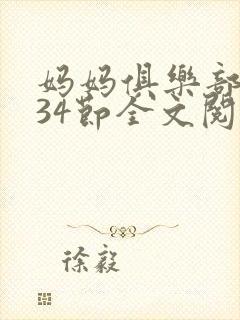 妈妈俱樂部
34節全文閱
徐毅